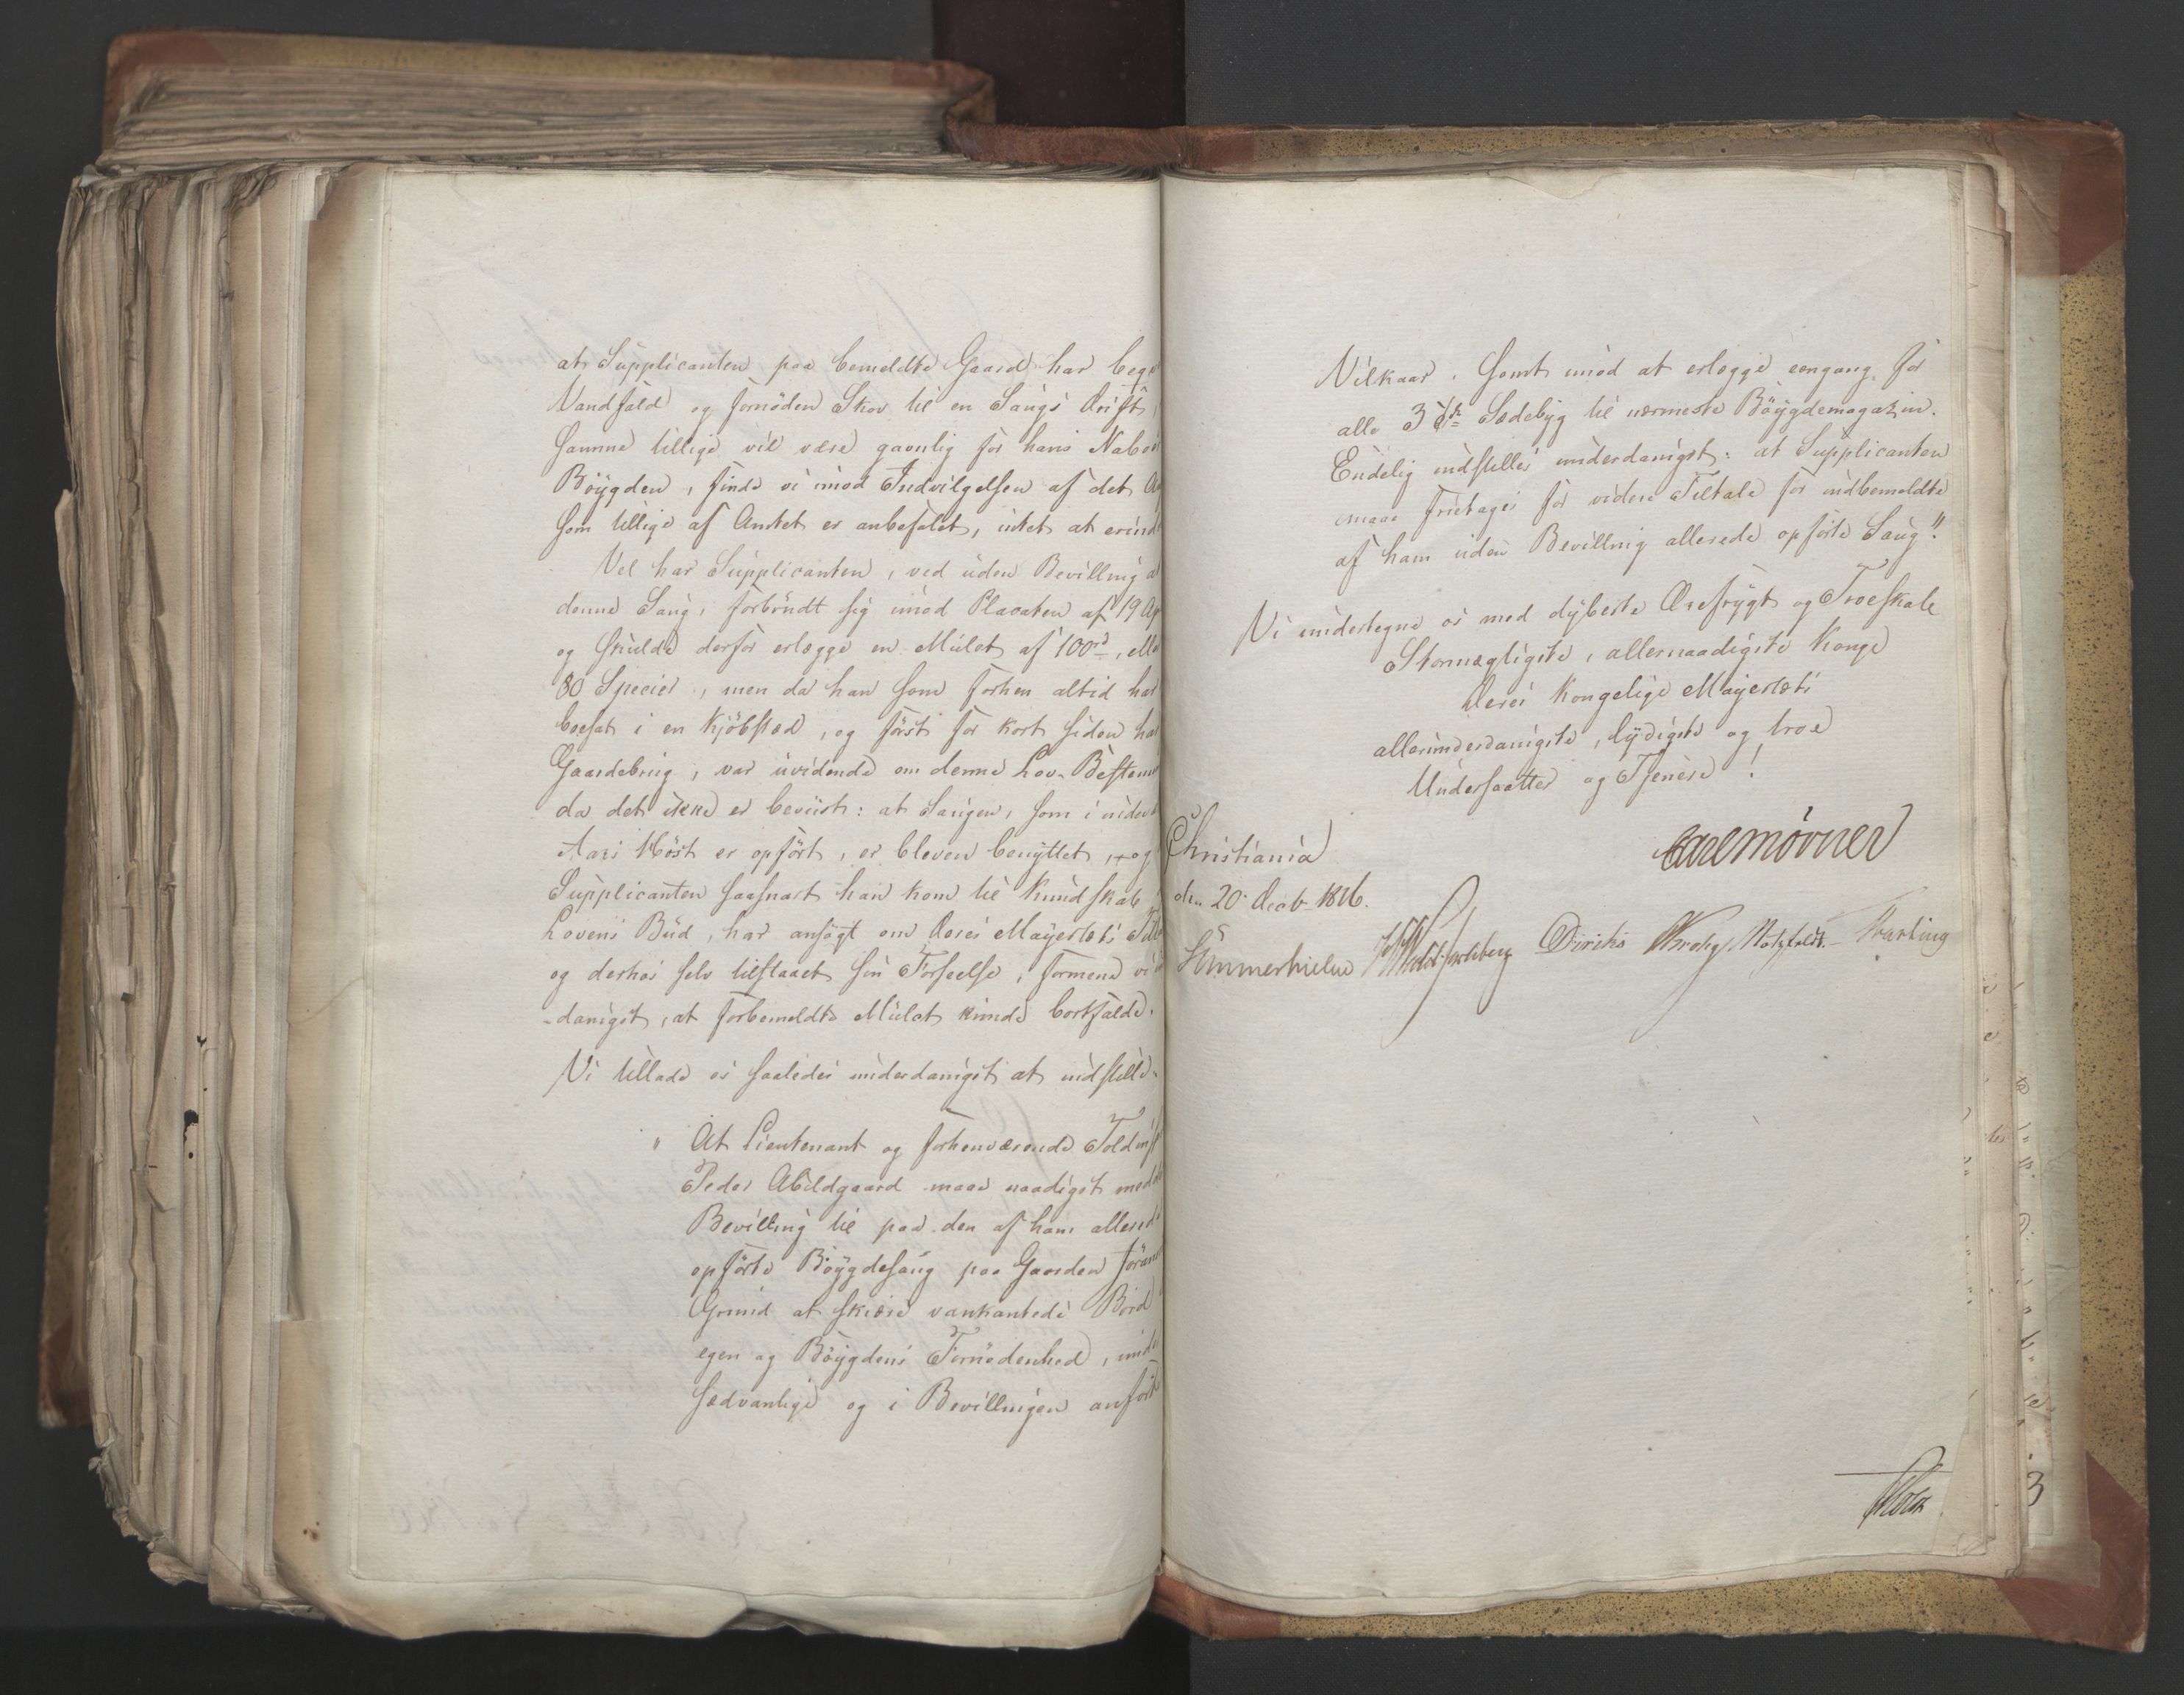 at Supplicanten paa bemeldte Gaard har
Vandfald og fornöden Skov til en Saugs Drift,
samme tillige vil være gavnlig for hans
Böygden, finde vi imod Indvilgelsen af det
som tillige af Amtet er anbefalet, intet at
Vel har Supplicanten, ved uden Bevilling
denne Saug, forbrudt sig imod Placaten af 19
og skulde derfor erlægge en Mulct af 100rd,
80 Species, men da han som forhen altid har
boesat i en Kjöbsted, og först for kort siden har
Gaardsbrug, var uvidende om denne Lov-
da det ikke er beviist: at Saugen, som i
Aars Höst er opfört, er bleven benyttet, og
Supplicanten saasnart han kom til Kundskab
Lovens Bud, har ansögt om Deres Mayestæts
og derhos selv tilstaaet sin Forseelse, formene
-danigst, at forbemeldte Mulct kunde bortfalde.
Vi tillade os saaledes underdanigst at indstille.
" At Lieutenant og forhenværende
Peder Abildgaard maae naadigst
Bevilling til paa den af ham allerede
opförte Böygdesaug paa Gaarden
Grund at skiære vankantede Bord
egen og Böygdens Fornödenhed,
sædvanlige og i Bevillingen anförte
Vilkaar. Samt imod at erlægge eengang for
alle 3 Sædebyg til nærmeste Böygdemagazin.
Endelig indstilles underdanigst: at Supplicanten
maae fritages for videre Tiltale for indbemeldte
af ham uden Bevilling allerede opförte Saug."
Vi undertegne os med dybeste Ærefrygt og Troeskab
Stormægtigste, allernaadigste Konge
Deres Kongelige Mayestæts
allerunderdanigste, lydigste og troe
Undersaatter og Tjenere!
Carl Mörner
Christiania
den 20. Decb. 1816.
Sommerhielm Diriks Krohg Motzfeldt.
Holst
3